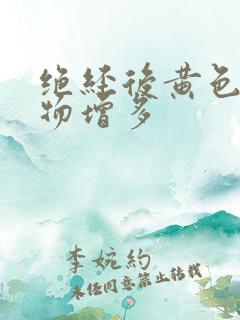 绝经后黄色
物增多
李婉約
未任同意禁止转载